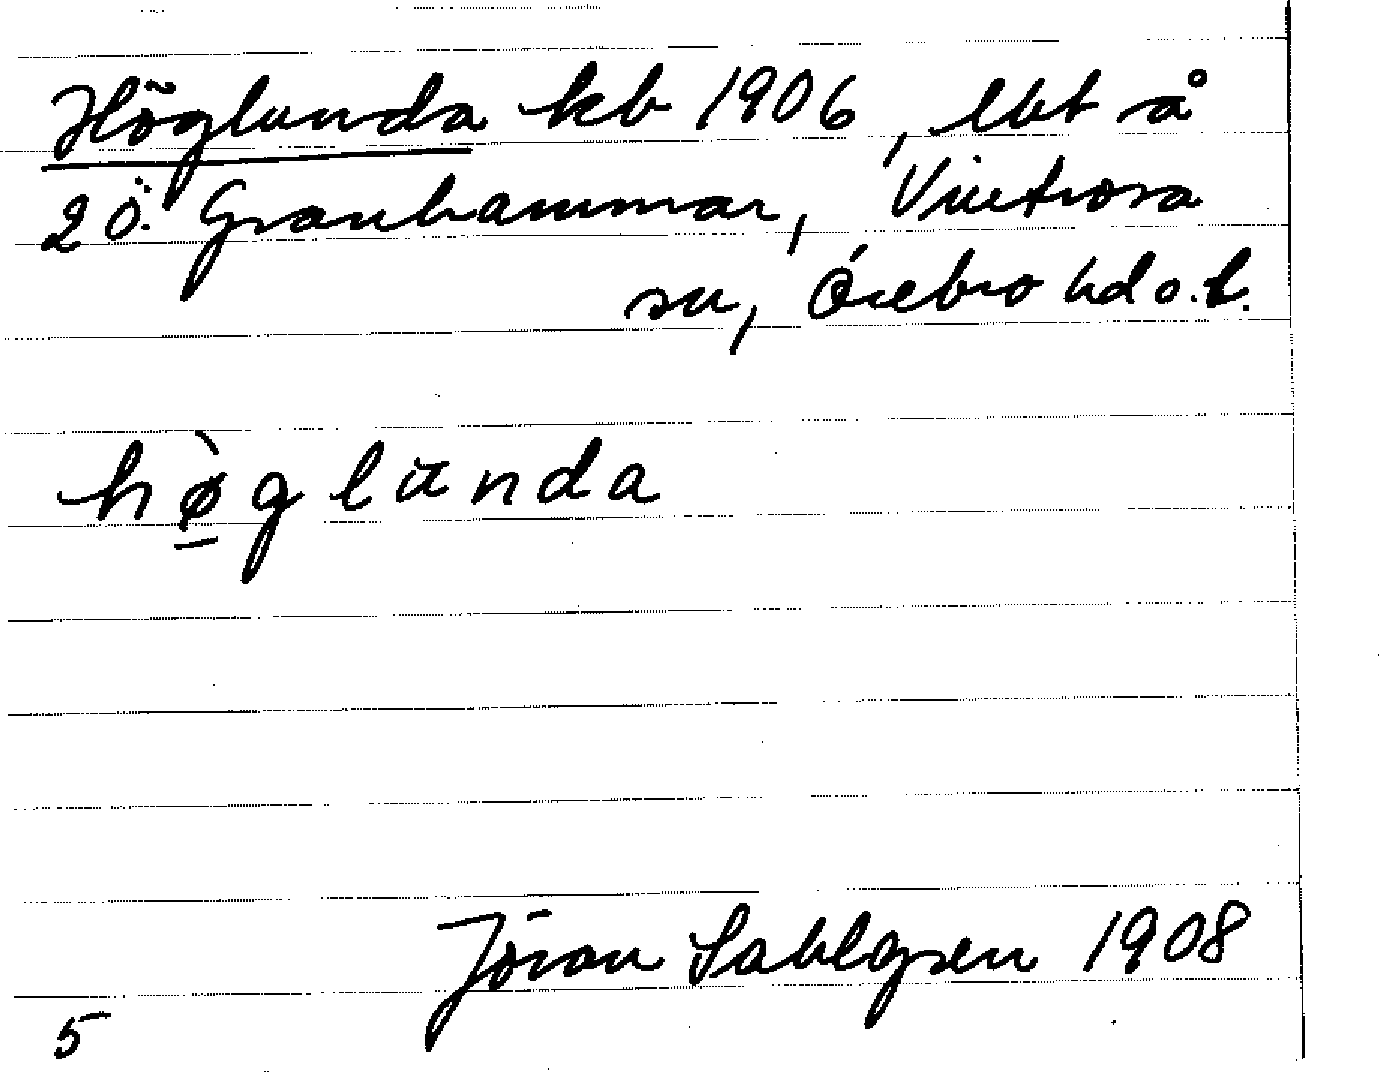 Höglunda kb 1906, lht å
2 Ö. Granhammar, Vintrosa
sn, Örebro hd o. l.
hø̲̀glunda
Jöran Sahlgren 1908
5